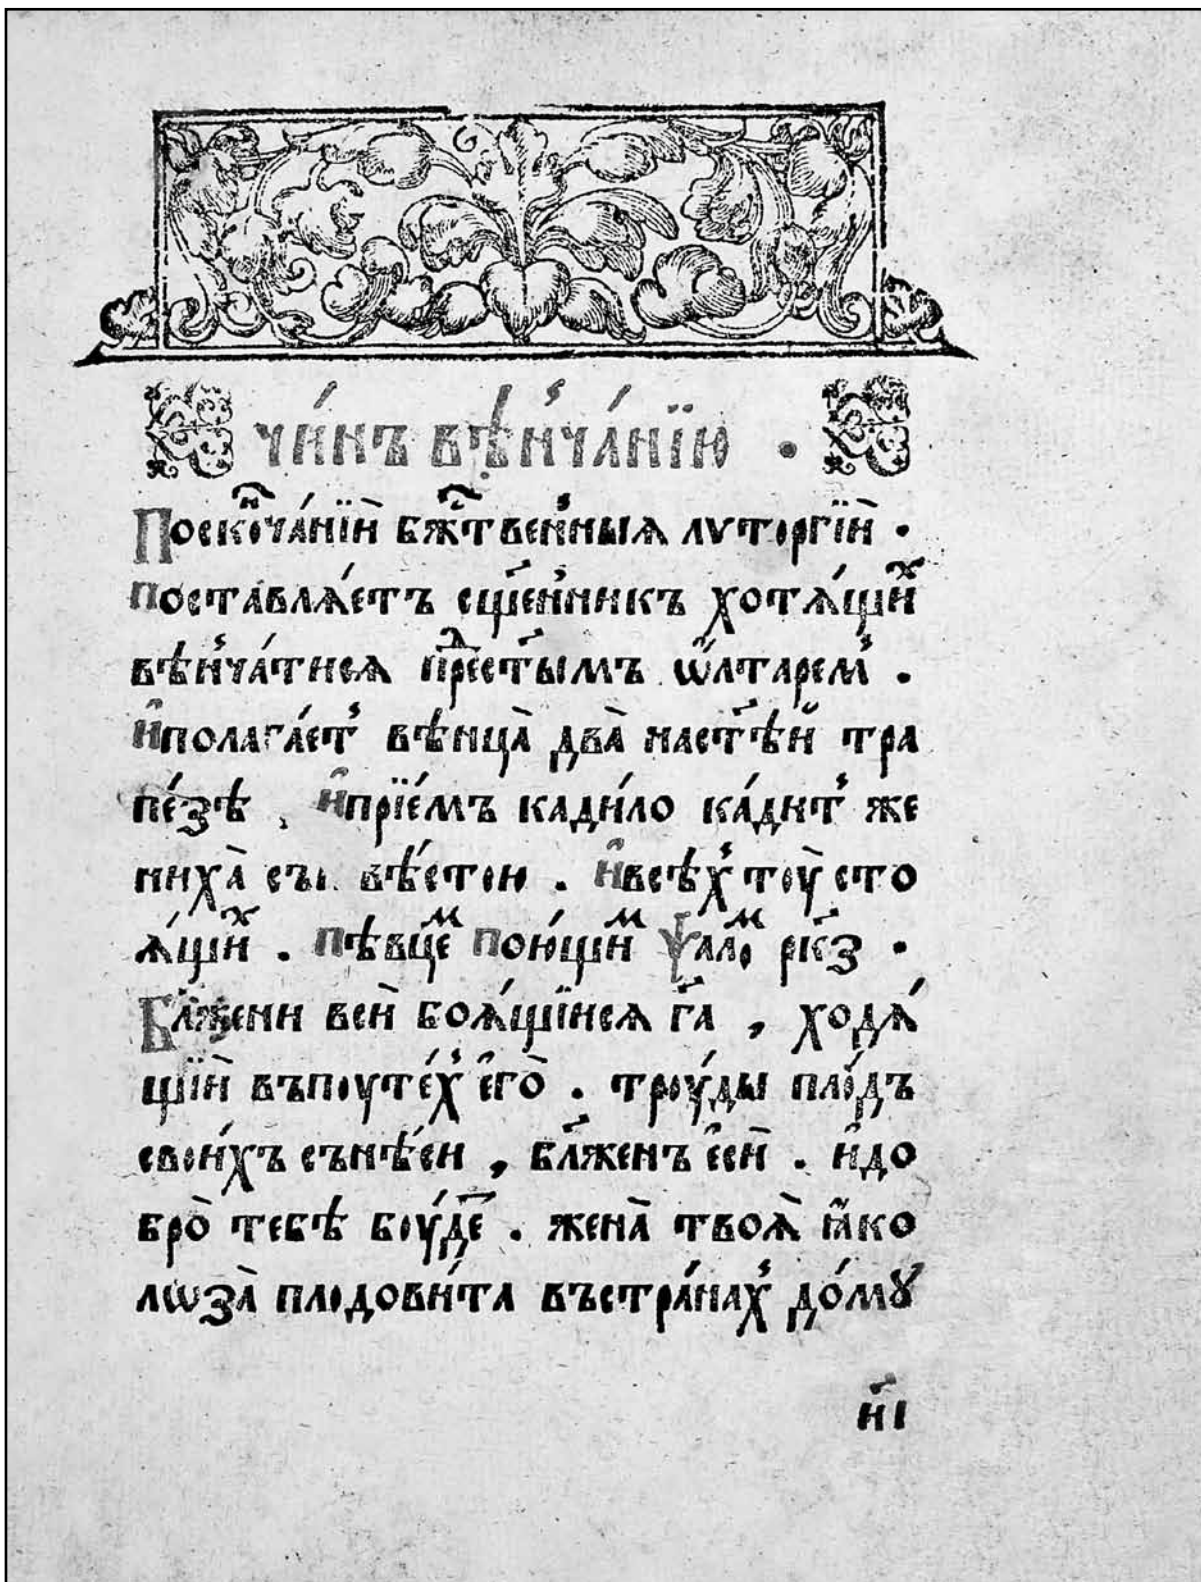 чи́нъ вѣн҆ча́нїю .
Поскⷩ҇оча́нїѝ бжⷭ҇твен҆ныѧ лѵторгїѝ .
поставлѧ́етъ сщ҃е́н҆никъ хотѧ́щиⷯ
вѣн҆ча́тисѧ прⷣе́ст҃ымъ ѡ҆лтарем҆ .
и҆полага́ет҆ вѣнца̀ два̀ наст҃ѣй тра
пе́зѣ . и҆прїе́мъ кади́ло ка́дит҆ же
ниха̀ съ вѣ́стою . и҆всѣ́х҆ тоу̀ сто
ѧ́щиⷯ . пѣвце́ⷨ пою́щиⷨ ѱалоⷨ рк҃з .
Бл҃жени всѝ боѧ́щїисѧ г҃а , ходѧ́
щїѝ въпоуте́х҆ е҆го̀ . троу́ды пло́дъ
свои́хъ сънѣ́си , бл҃же́нъ є҆сѝ . и҆до
бро̀ тебѣ̀ боу́де . жена̀ твоѧ̀ ꙗ҆ко
лѡза̀ плодови́та въстра́нах҆ до́мꙋ
и҃і